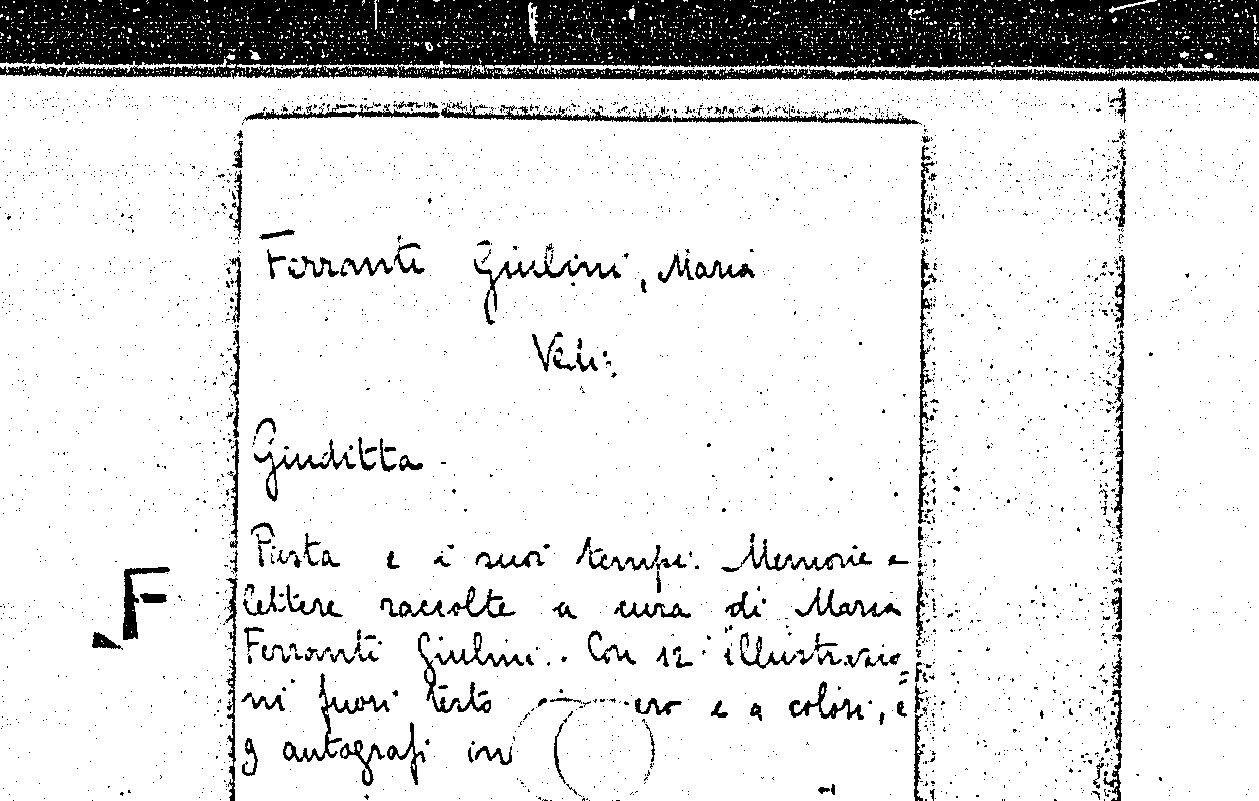 Ferranti Giulini, Maria
Vedi:
Giuditta
F
Pasta e i suoi tempi. Memorie e
lettere raccolte a cura di Maria
Ferranti Giulini.. Con 12 illustrazio=
ni fuori testo e a colori, e
9 autografi in